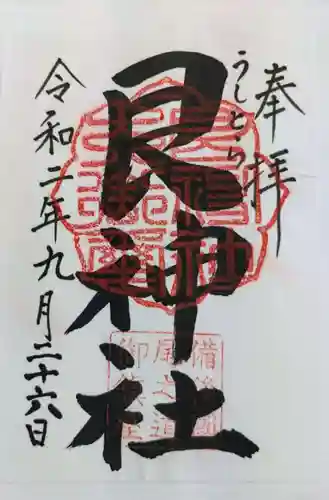 奉拝
うしとら
艮神社
令和二年九月二十六日
備後國
尾之道